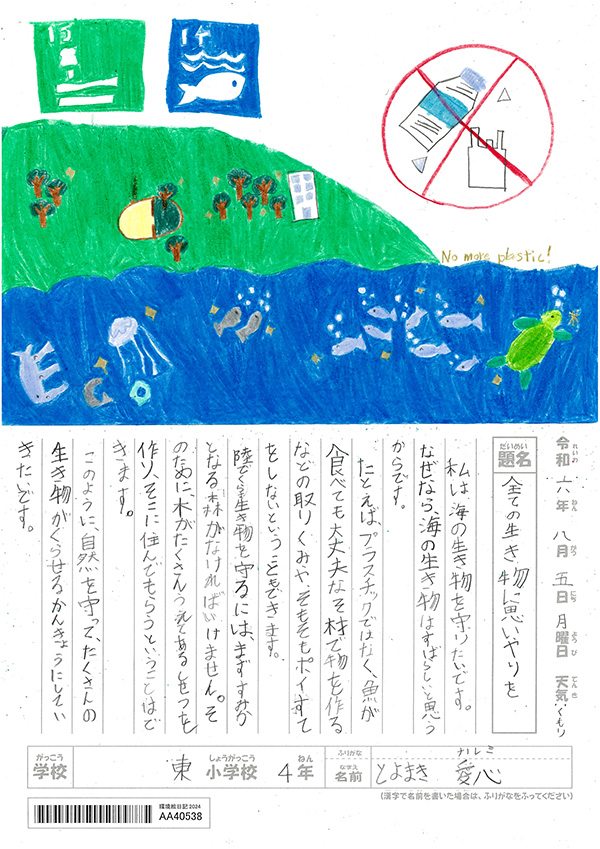 15
14
No more plastic!
れいわ ねん がつ にち ようび てんき
令和 六年 八月 五日 月曜日 天気 くもり
だいめい
題名 全ての生き物に思いやりを
私は海の生き物を守りたいです。
なぜなら、海の生き物はすばらしいと思う
からです。
たとえば、プラスチックではなく、魚が
食べても大丈夫なそ材で物を作る
などの取りくみや、そもそもポイすて
をしないということもできます。
陸でくらす生き物を守るには、まずすみか
となる森がなければいけません。そ
のために木がたくさんうえてあるしせつを
作り、そこに住んでもらうということはで
きます。
このように、自然を守って、たくさんの
生き物がくらせるかんきょうにしてい
きたいです。
がっこう しょうがっこう ねん ふりがな ハルミ
学校 東 小学校 4年 なまえ 名前 とよまき 愛心
(漢字で名前を書いた場合は、ふりがなをふってください)
環境絵日記2024
AA40538